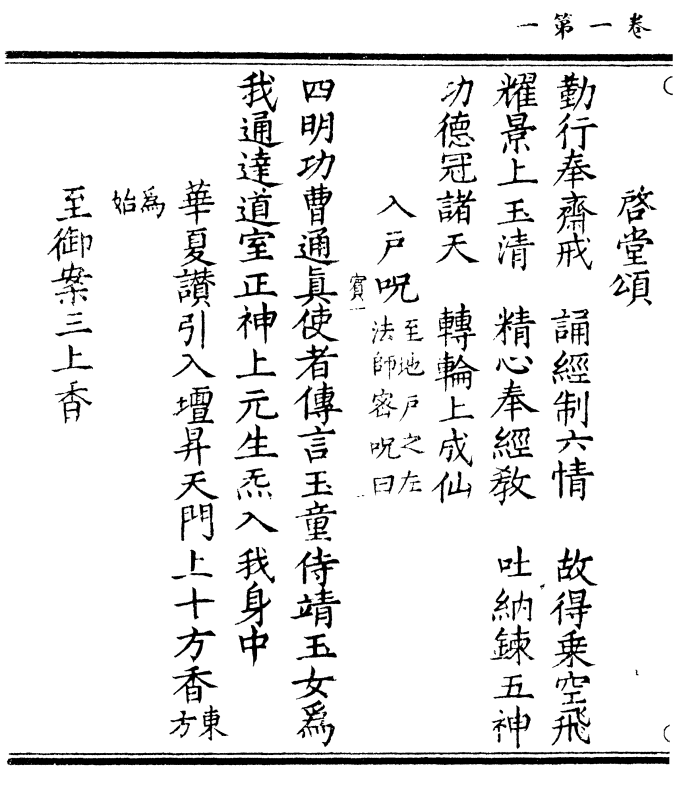 卷一第一
啓堂頌
勤行奉齋戒　誦經制六情　故得乗空飛
耀景上玉清　精心奉經教　吐納鍊五神
功德冠諸天　轉輪上成仙
入戶呪
至地戶之左
法師密呪曰
四明功曹通眞使者傳言玉童侍靖玉女爲
我通達道室正神上元生炁入我身中
華夏讃引入壇昇天門上十方香東方
爲始
至御案三上香